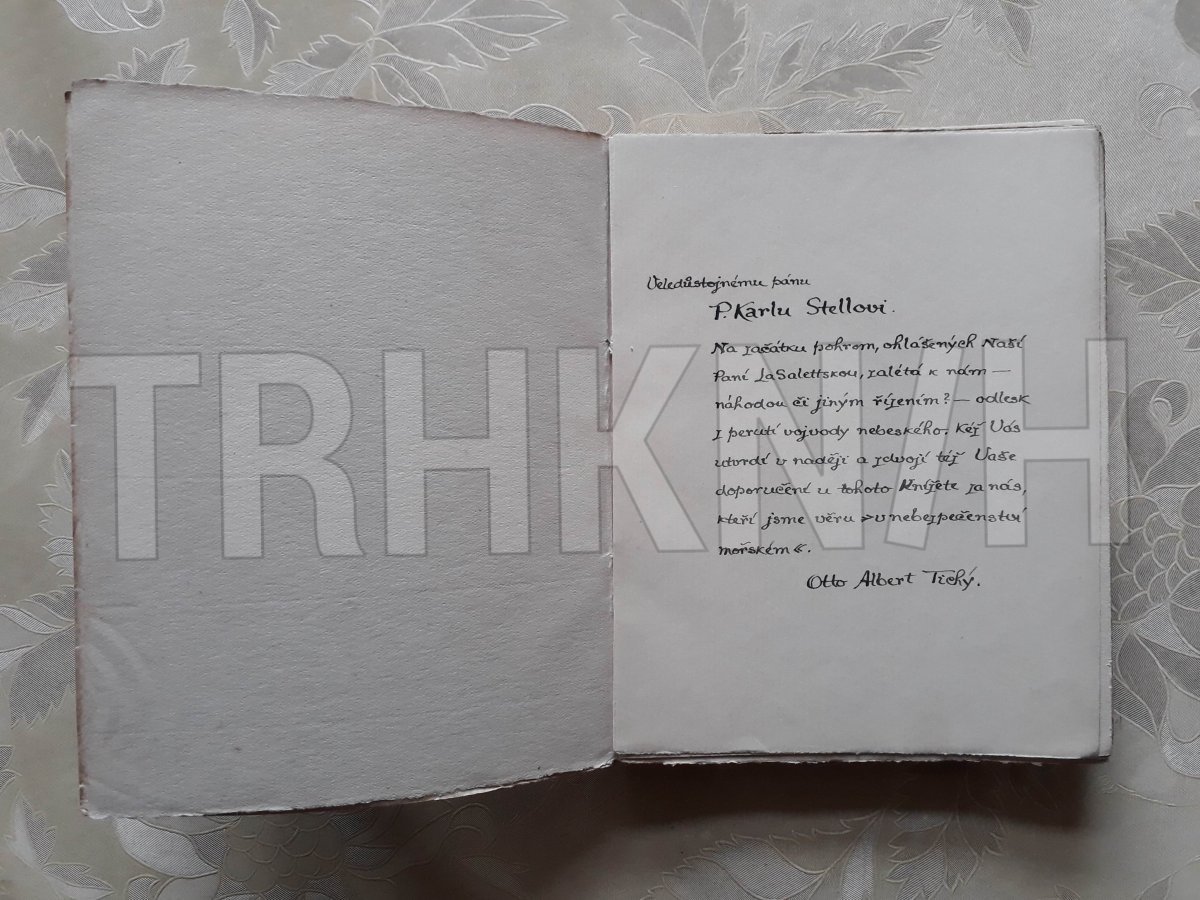 Veledůstojnému pánu
P. Karlu Stellovi.
Na začátku pohrom, ohlášených Naší
Paní LaSalettskou, zalétá k nám —
náhodou či jiným řízením? — odlesk
z perutí vojvody nebeského. Kéž Vás
utvrdí v naději a zdvojí též Vaše
doporučení u tohoto Knížete za nás,
kteří jsme věru »v nebezpečenství
mořském«.
Otto Albert Tichý.
TRHKNIH